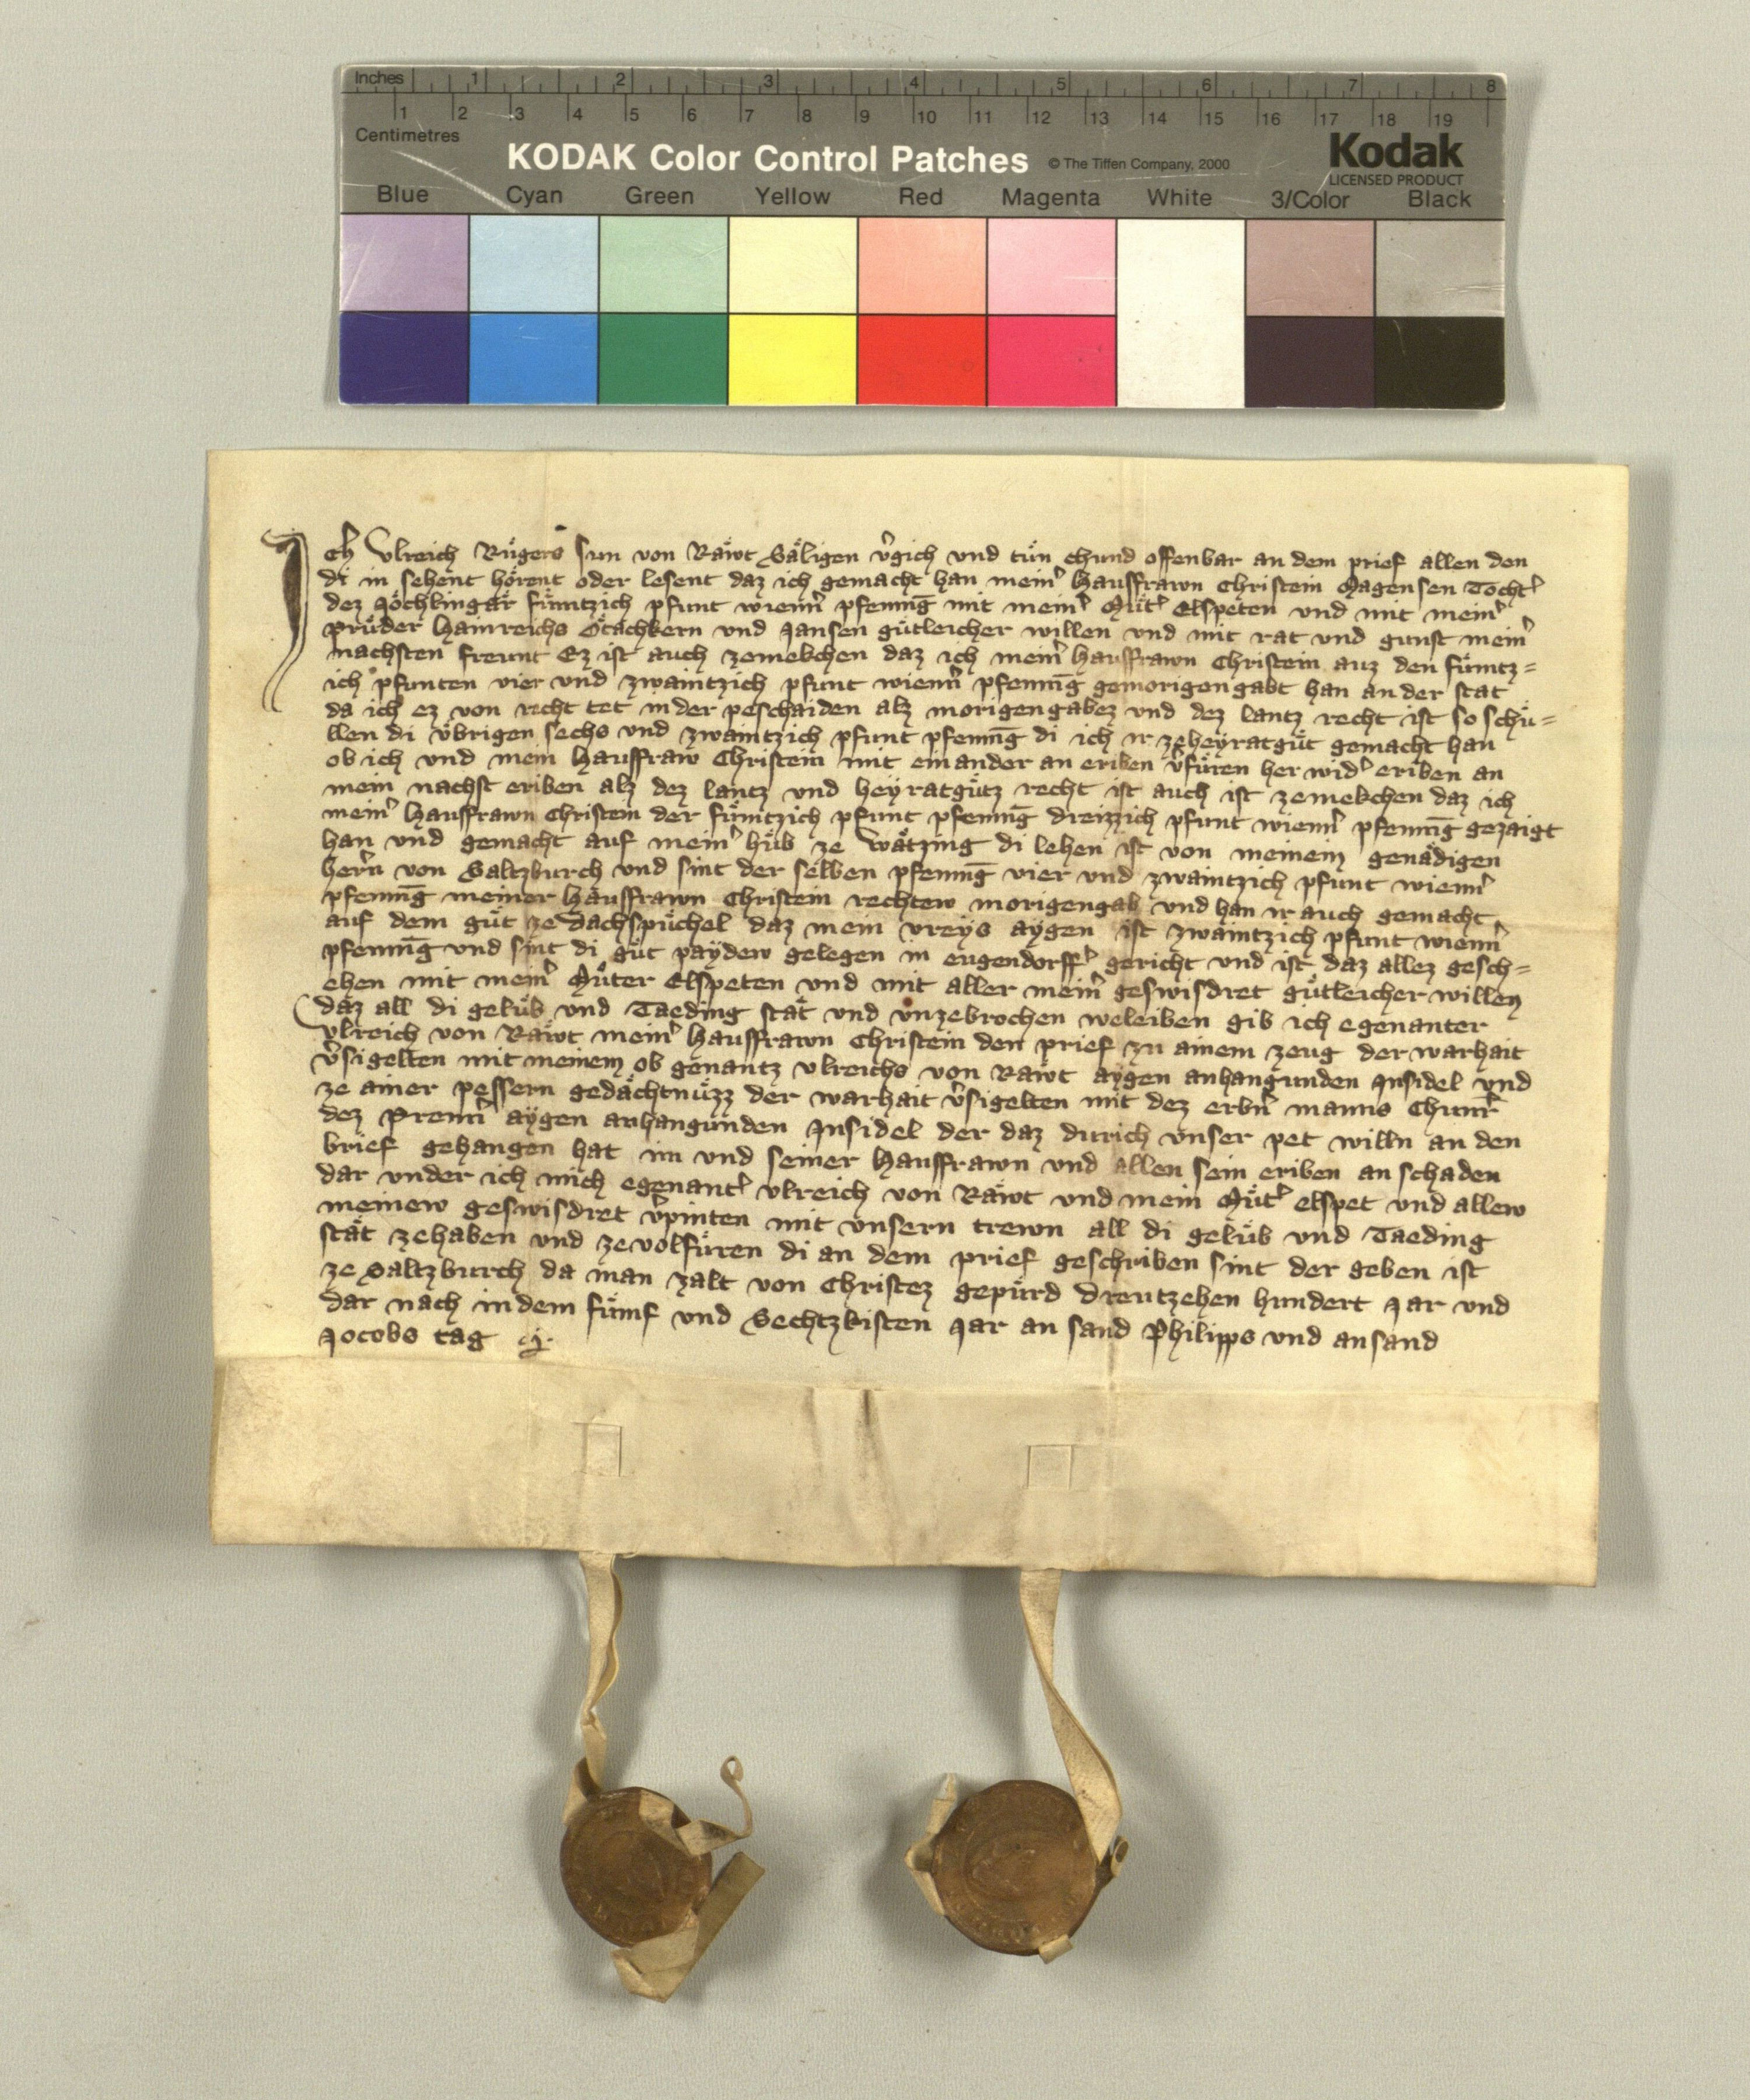 Inches 1 2 3 4 5 6 7 8
1 2 3 4 5 6 7 8 9 10 11 12 13 14 15 16 17 18 19
Centimetres
KODAK Color Control Patches © The Tiffen Company, 2000
Kodak
LICENSED PRODUCT
Blue Cyan Green Yellow Red Magenta White 3/Color Black
Ich Vlreich Rügers sun von Räwt Säligen v̾gich vnd tün chund offenbar an dem prief allen den
di in sehent hörent oder lesent daz ich gemacht han mein̾ Hausfrawn Christein Magensen Tocht̾
dez Jöchlingär fümtzich pfunt wienn̾ pfenni̅g mit mein̾ Müt̾ Elspeten vnd mit mein̾
prüder Hainreichs Stächkern vnd Jansen gütleicher willen vnd mit rat vnd gunst mein̾
nachsten freunt Ez ist auch zemekchen daz ich mein̾ Hausfrawn Christein auz den fümtz=
ich pfunten vier vnd zwaintzich pfunt wienn̾ pfenni̅g gemorigengabt han an der stat
da ich ez von recht tet in der peschaiden alz morigengabez vnd dez lantz recht ist so schü=
llen di übrigen sechs vnd zwaintzich pfunt pfenni̅g di ich ir zeheyratgüt gemacht han
ob ich vnd mein Hausfraw Christein mit einander an eriben v̾füren her wid̾ eriben an
mein nachst eriben alz dez lantz vnd heyratgütz recht ist auch ist zemekchen daz ich
mein̾ Hausfrawn Christein der fümtzich pfunt pfenni̅g dreizzich pfunt wienn̾ pfenni̅g gezaigt
han vnd gemacht auf mein̾ hüb ze Wätzing di lehen ist von meinem genädigen
hern̾ von Saltzburch vnd sint der selben pfenni̅g vier vnd zwaintzich pfunt wienn̾
pfenni̅g meiner Hausfrawn Christein rechtew morigengab vnd han ir auch gemacht
auf dem güt ze Dachspüchel daz mein vreys aygen ist zwaintzich pfunt wienn̾
pfenni̅g vnd sint di güt päydew gelegen in eugendorff̾ gericht vnd ist daz allez gesch=
ehen mit mein̾ Müter Elspeten vnd mit aller mein̾ geswisdret gütleicher willen
daz all di gelüb vnd Taeding stät vnd vnzebrochen weleiben gib ich egenanter
vlreich von Räwt mein̾ Hausfrawn Christein den prief zu ainem zeug der warhait
v̾sigelten mit meinem ob genantz vlreichs von Räwt aygen anhangunden Insidel vnd
ze ainer pessern gedächtnüzz der warhait v̾sigelten mit dez erbn̾ manns Chunr̾
dez Prenn̾ aygen anhangunden Insidel der daz durich vnser pet willn an den
brief gehangen hat im vnd seiner Hausfrawn vnd allen sein eriben an schaden
dar vnder ich mich egenant̾ vlreich von Räwt vnd mein Müt̾ elspet vnd allew
meinew geswisdret v̾pinten mit vnsern trewn all di gelüb vnd Taeding
stät zehaben vnd zevolfüren di an dem prief geschriben sint der geben ist
ze Saltzburch da man zalt von Christez gepürd Dreutzehen hundert Jar vnd
dar nach in dem fümf vnd Sechtzkisten Jar an sand Philipps vnd an sand
Jocobs tag